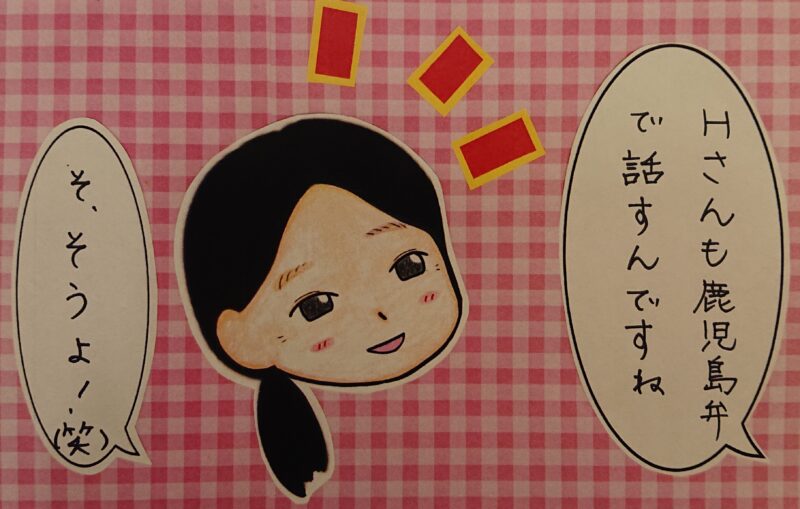 Hさんも鹿児島弁
で話すんですね
そ、そうよ!(笑)